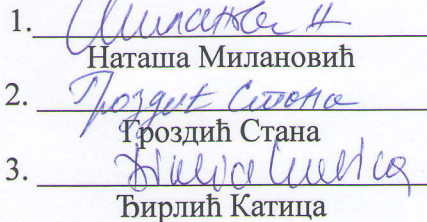 1. Милановић Н
Наташа Милановић
2. Гроздић Стана
Гроздић Стана
3.
Ђирлић Катица